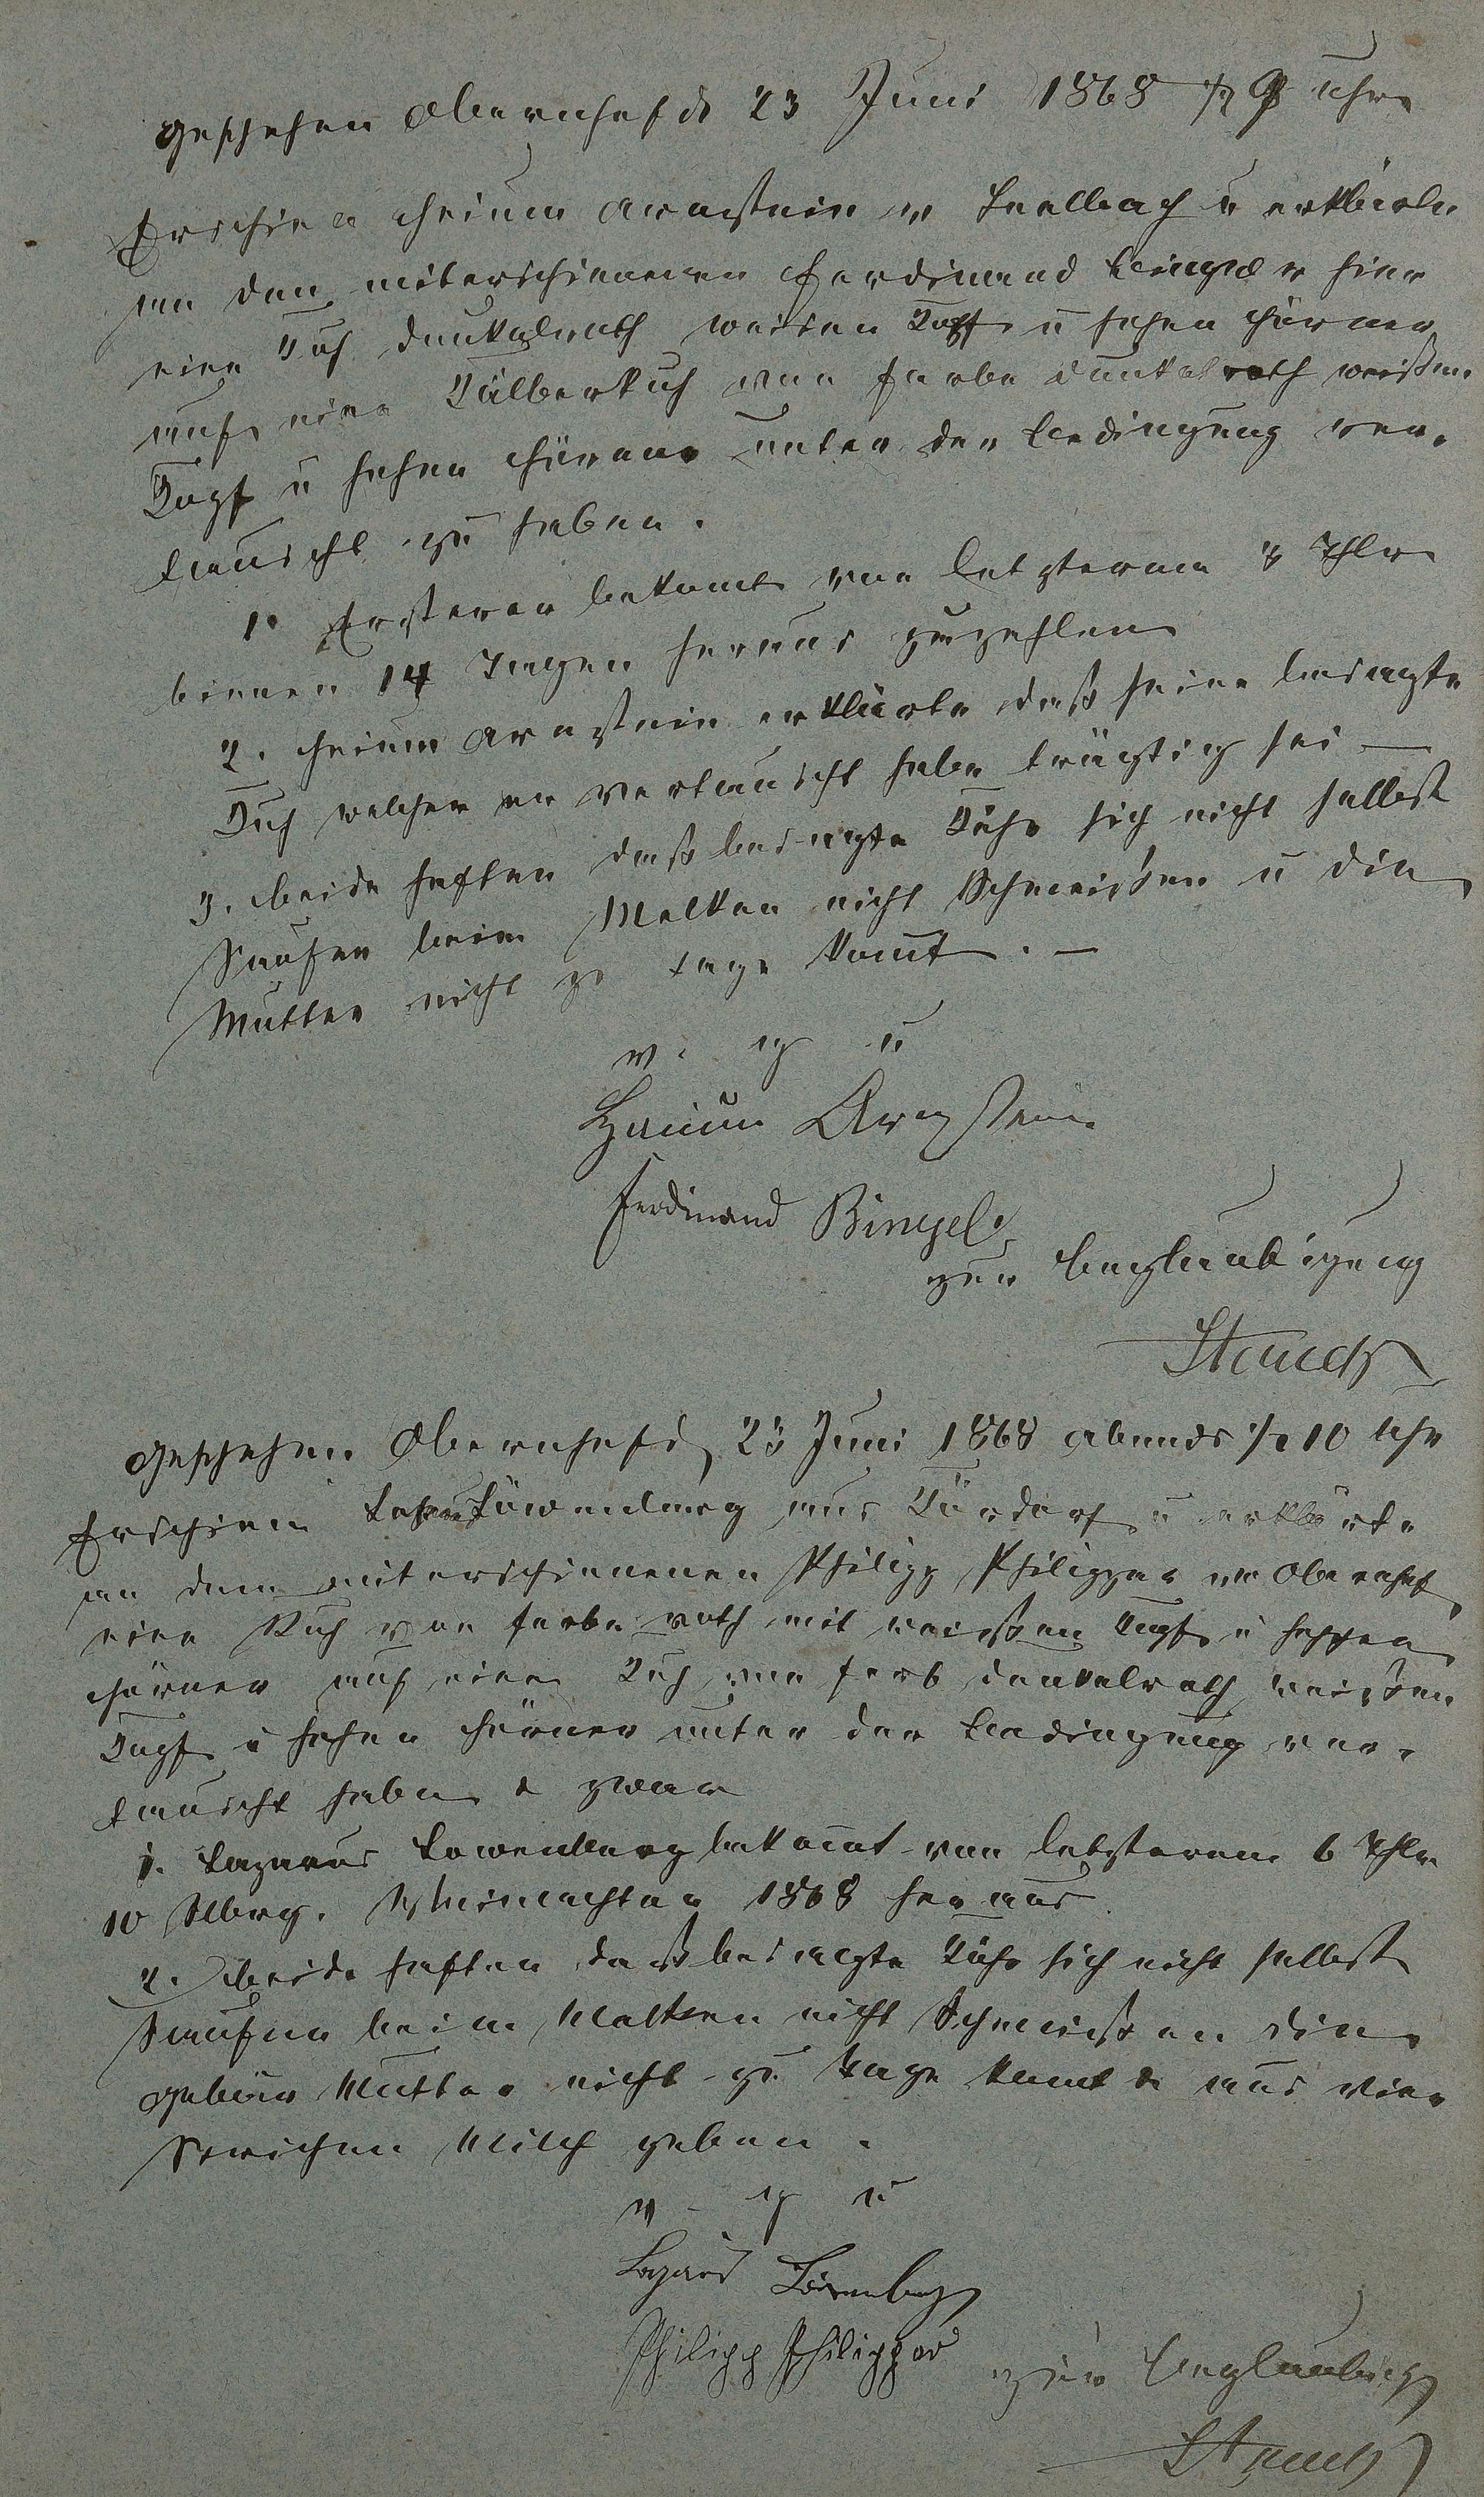 Geschehen Obernhof d 23 Juni 1868 1/2 9 Uhr
Erschien Heium Arnstein v Seelbach u erklärte
an den miterschienenen Ferdinand Bingel v hier
eine Kuh dunkelroth weisen Kopf u hohen Hörner
auf eine Kälberkuh von Farbe dunkelroth weißen
Kopf u hohen Hörner unter der Bedingung ver-
tauscht zu haben.
1. Ersterer bekomt von letzterem 8 Thlr
binnen 14 Tagen heraus zuzahlen
2. Heium Arnstein erklärte daß seine besagte
Kuh welcher er vertauscht habe trägtig sei —
3. beide haften daß besagte Kühe sich nicht selbst
Saufen beim Melken nicht Schmeißen u die
Mutter nicht zu tage komt. —
v. g u
Haium Arnstein
Ferdinand Bingel
zur Beglaubigung
Stauch
Geschehen Obernhof d 23 Juni 1868 abends 1/2 10 Uhr
Erschien Löwenberg aus Kördorf u erklärte
an dem miterschienenen Philipp Philippar von Obernhof
eine Kuh von farbe roth mit weißen Kopf u
Hörner auf eine Kuh von farb dunkelroth weißen
Kopf u hohen Hörner unter der Bedingung ver-
tauscht haben & zwar
1. Lazarus Löwenberg bekomt von letzterem 6 Thlr
10 Slbrg. Weinachten 1868 heraus
2. beide haften daß besagte Kühe sich nicht selbst
Saufen beim Melken nicht Schmeißen die
gebär Mutter nicht zu tage komt & aus vier
Strichen Milch geben.
v. g u
Lazarus Löwenberg
Philipp Philippar
zur Beglaubig
Stauch